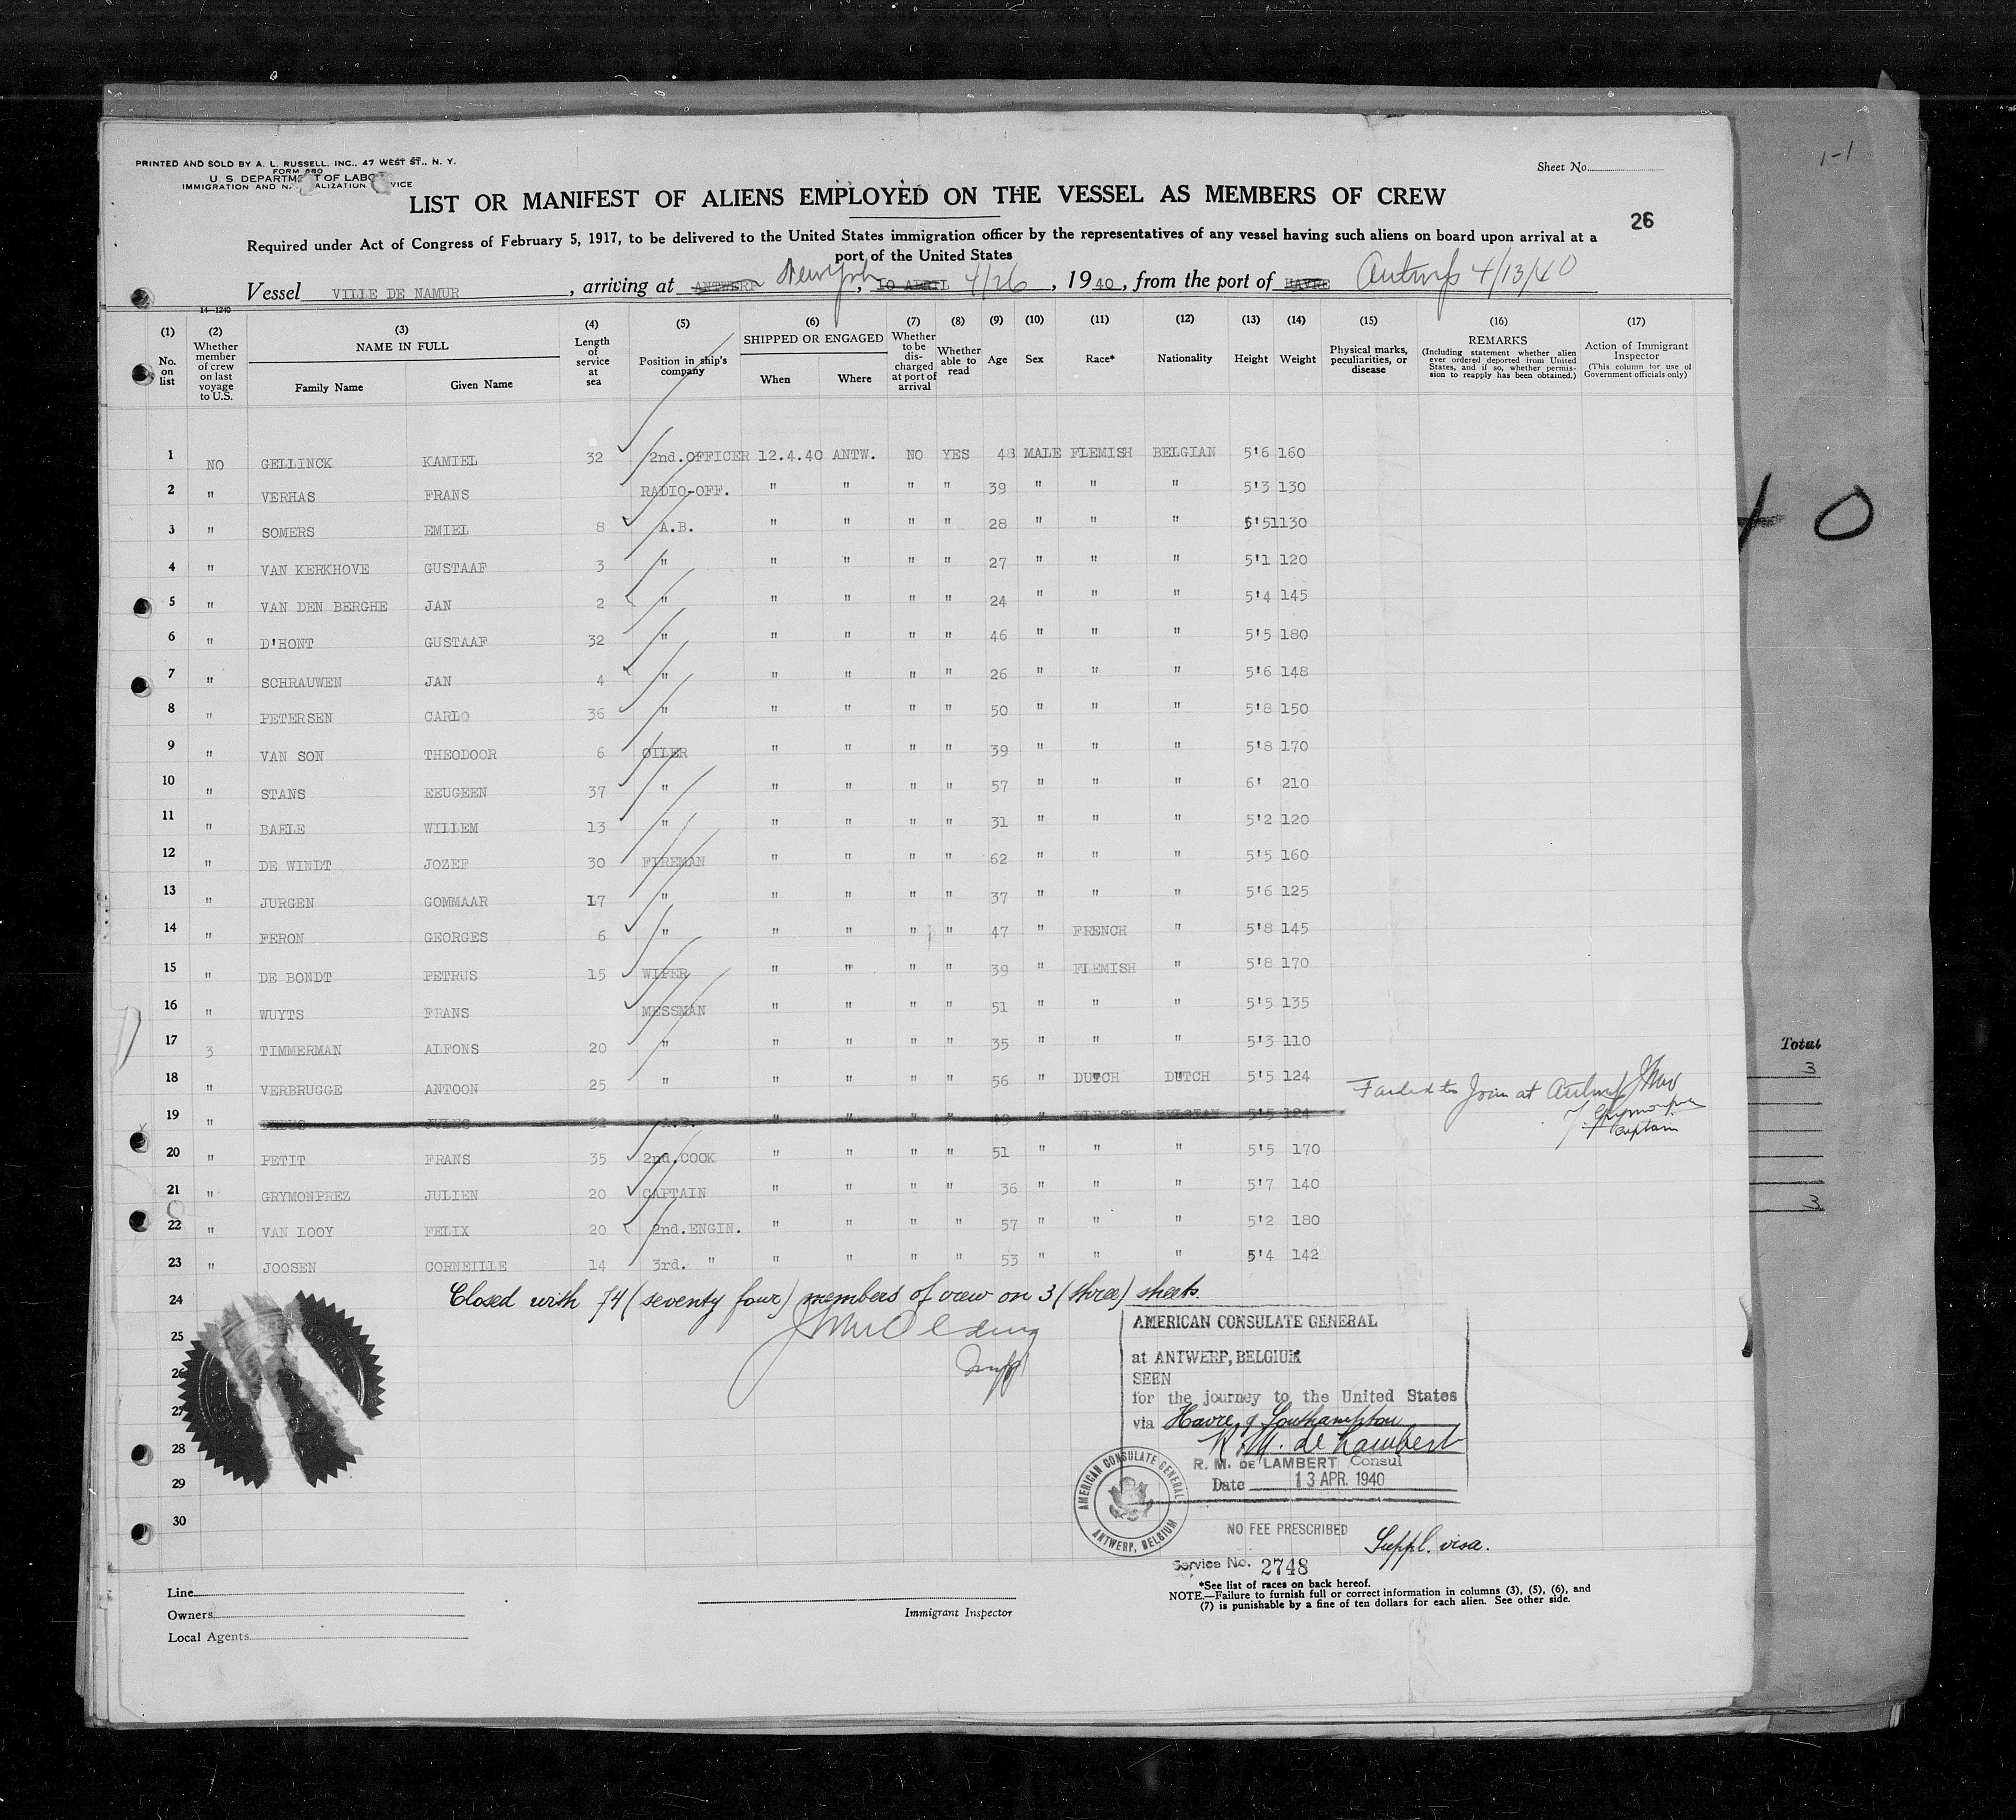 PRINTED AND SOLD BY A. L. RUSSELL, INC., 47 WEST ST., N. Y.
FORM 680
U. S. DEPARTMENT OF LABOR
IMMIGRATION AND NATURALIZATION SERVICE
Sheet No.
1-1
LIST OR MANIFEST OF ALIENS EMPLOYED ON THE VESSEL AS MEMBERS OF CREW
26
Required under Act of Congress of February 5, 1917, to be delivered to the United States immigration officer by the representatives of any vessel having such aliens on board upon arrival at a
port of the United States
Vessel VILLE DE NAMUR, arriving at ANTWERP New York, 10 APRIL 4/26, 1940, from the port of HAVRE Antwerp 4/13/40
14-1240
(1) No. on list
(2) Whether member of crew on last voyage to U.S.
(3) NAME IN FULL Family Name Given Name
(4) Length of service at sea
(5) Position in ship's company
(6) SHIPPED OR ENGAGED When Where
(7) Whether to be discharged at port of arrival
(8) Whether able to read
(9) Age
(10) Sex
(11) Race*
(12) Nationality
(13) Height
(14) Weight
(15) Physical marks, peculiarities, or disease
(16) REMARKS (Including statement whether alien ever ordered deported from United States, and if so, whether permission to reapply has been obtained.)
(17) Action of Immigrant Inspector (This column for use of Government officials only)
1 NO GELLINCK KAMIEL 32 2nd.OFFICER 12.4.40 ANTW. NO YES 48 MALE FLEMISH BELGIAN 5'6 160
2 " VERHAS FRANS RADIO-OFF. " " " " 39 " " " 5'3 130
3 " SOMERS EMIEL 8 A.B. " " " " 28 " " " 5'51130
4 " VAN KERKHOVE GUSTAAF 3 " " " " " 27 " " " 5'1 120
5 " VAN DEN BERGHE JAN 2 " " " " " 24 " " " 5'4 145
6 " D'HONT GUSTAAF 32 " " " " " 46 " " " 5'5 180
7 " SCHRAUWEN JAN 4 " " " " " 26 " " " 5'6 148
8 " PETERSEN CARLO 36 " " " " " 50 " " " 5'8 150
9 " VAN SON THEODOOR 6 OILER " " " " 39 " " " 5'8 170
10 " STANS EEUGEEN 37 " " " " " 57 " " " 6' 210
11 " BAELE WILLEM 13 " " " " " 31 " " " 5'2 120
12 " DE WINDT JOZEF 30 FIREMAN " " " " 62 " " " 5'5 160
13 " JURGEN GOMMAAR 17 " " " " " 37 " " " 5'6 125
14 " FERON GEORGES 6 " " " " " 47 " FRENCH " 5'8 145
15 " DE BONDT PETRUS 15 WIPER " " " " 39 " FLEMISH " 5'8 170
16 " WUYTS FRANS MESSMAN " " " " 51 " " " 5'5 135
17 3 TIMMERMAN ALFONS 20 " " " " " 35 " " " 5'3 110
18 " VERBRUGGE ANTOON 25 " " " " " 56 " DUTCH DUTCH 5'5 124
19 " JULES 32 A.B. " " " " 49 " FLEMISH BELGIAN 5'5 124 Failed to Join at Antwerp
Grymonprez
Captain
20 " PETIT FRANS 35 2nd.COOK " " " " 51 " " " 5'5 170
21 " GRYMONPREZ JULIEN 20 CAPTAIN " " " " 36 " " " 5'7 140
22 " VAN LOOY FELIX 20 2nd.ENGIN. " " " " 57 " " " 5'2 180
23 " JOOSEN CORNEILLE 14 3rd. " " " " " 53 " " " 5'4 142
24 Closed with 74 (seventy four) members of crew on 3 (three) sheets.
25
26
27
28
29
30
AMERICAN CONSULATE GENERAL
at ANTWERP, BELGIUM
SEEN
for the journey to the United States
via Havre & Southampton
R. M. de Lambert
R. M. DE LAMBERT Consul
Date 13 APR. 1940
AMERICAN CONSULATE GENERAL ANTWERP, BELGIUM
NO FEE PRESCRIBED
Suppl. visa.
Service No. 2748
Line
Owners
Local Agents
Immigrant Inspector
*See list of races on back hereof.
NOTE.—Failure to furnish full or correct information in columns (3), (5), (6), and
(7) is punishable by a fine of ten dollars for each alien. See other side.
Total
3
3